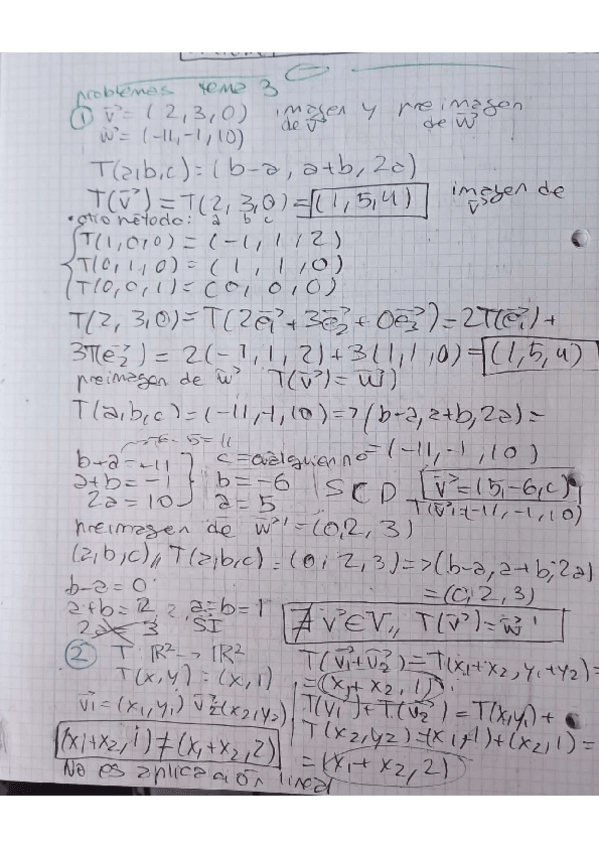 problemas tema 3
① v⃗ = (2, 3, 0) imagen y preimagen
w⃗ = (-11, -1, 10) de v⃗ de w⃗
T(a,b,c) = (b-a, a+b, 2a)
T(v⃗) = T(2, 3, 0) = (1, 5, 4) imagen de v⃗
a b c
• otro método:
T(1,0,0) = (-1, 1, 2)
T(0,1,0) = (1, 1, 0)
T(0,0,1) = (0, 0, 0)
T(2, 3, 0) = T(2e⃗₁ + 3e⃗₂ + 0e⃗₃) = 2T(e⃗₁) +
3T(e⃗₂) = 2(-1, 1, 2) + 3(1, 1, 0) = (1, 5, 4)
preimagen de w⃗ T(v⃗) = w⃗)
T(a,b,c) = (-11, -1, 10) => (b-a, a+b, 2a) =
= (-11, -1, 10)
-6-5=11
b-a = -11 c = cualquier nº
a+b = -1 b = -6 SCD v⃗ = (5, -6, c)
2a = 10 a = 5 T(v⃗) = (-11, -1, 10)
preimagen de w⃗' = (0, 2, 3)
(a,b,c) // T(a,b,c) = (0, 2, 3) => (b-a, a+b, 2a)
b-a = 0 = (0, 2, 3)
a+b = 2 a=b=1 ∄ v⃗ ∈ V // T(v⃗) = w⃗'
2 3 SI
② T: ℝ² → ℝ²
T(x,y) = (x, 1)
v⃗₁ = (x₁,y₁) v⃗₂ (x₂,y₂)
T(v⃗₁+v⃗₂) = T(x₁+x₂, y₁+y₂) =
= (x₁+x₂, 1)
T(v₁) + T(v⃗₂) = T(x₁y₁) +
T(x₂,y₂) = (x₁, 1) + (x₂, 1) =
= (x₁+x₂, 2)
(x₁+x₂, 1) ≠ (x₁+x₂, 2)
No es aplicación lineal